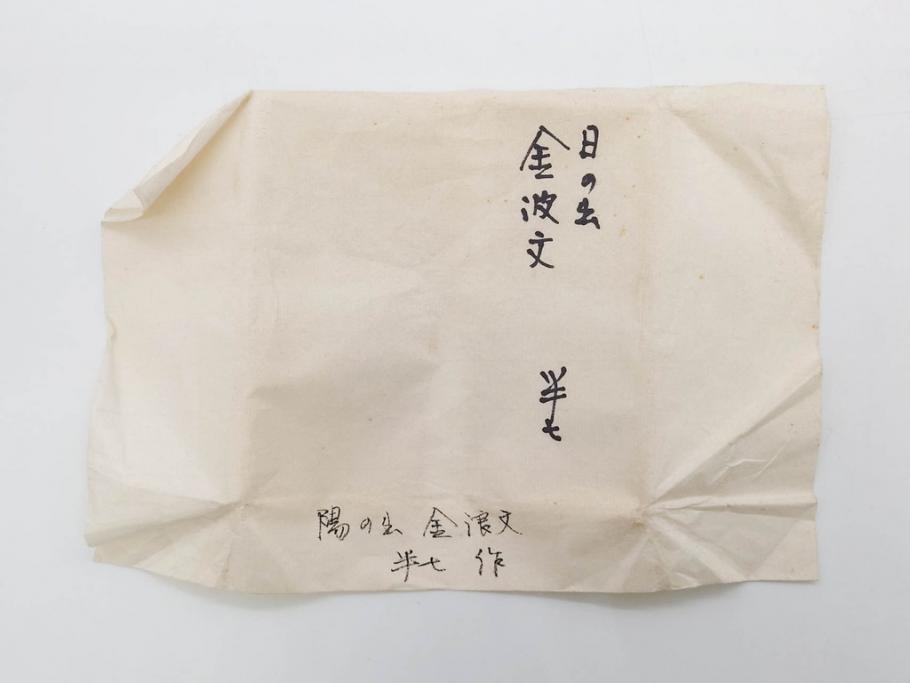 日の出
金波文
半七
陽の出 金濃文
半七 作